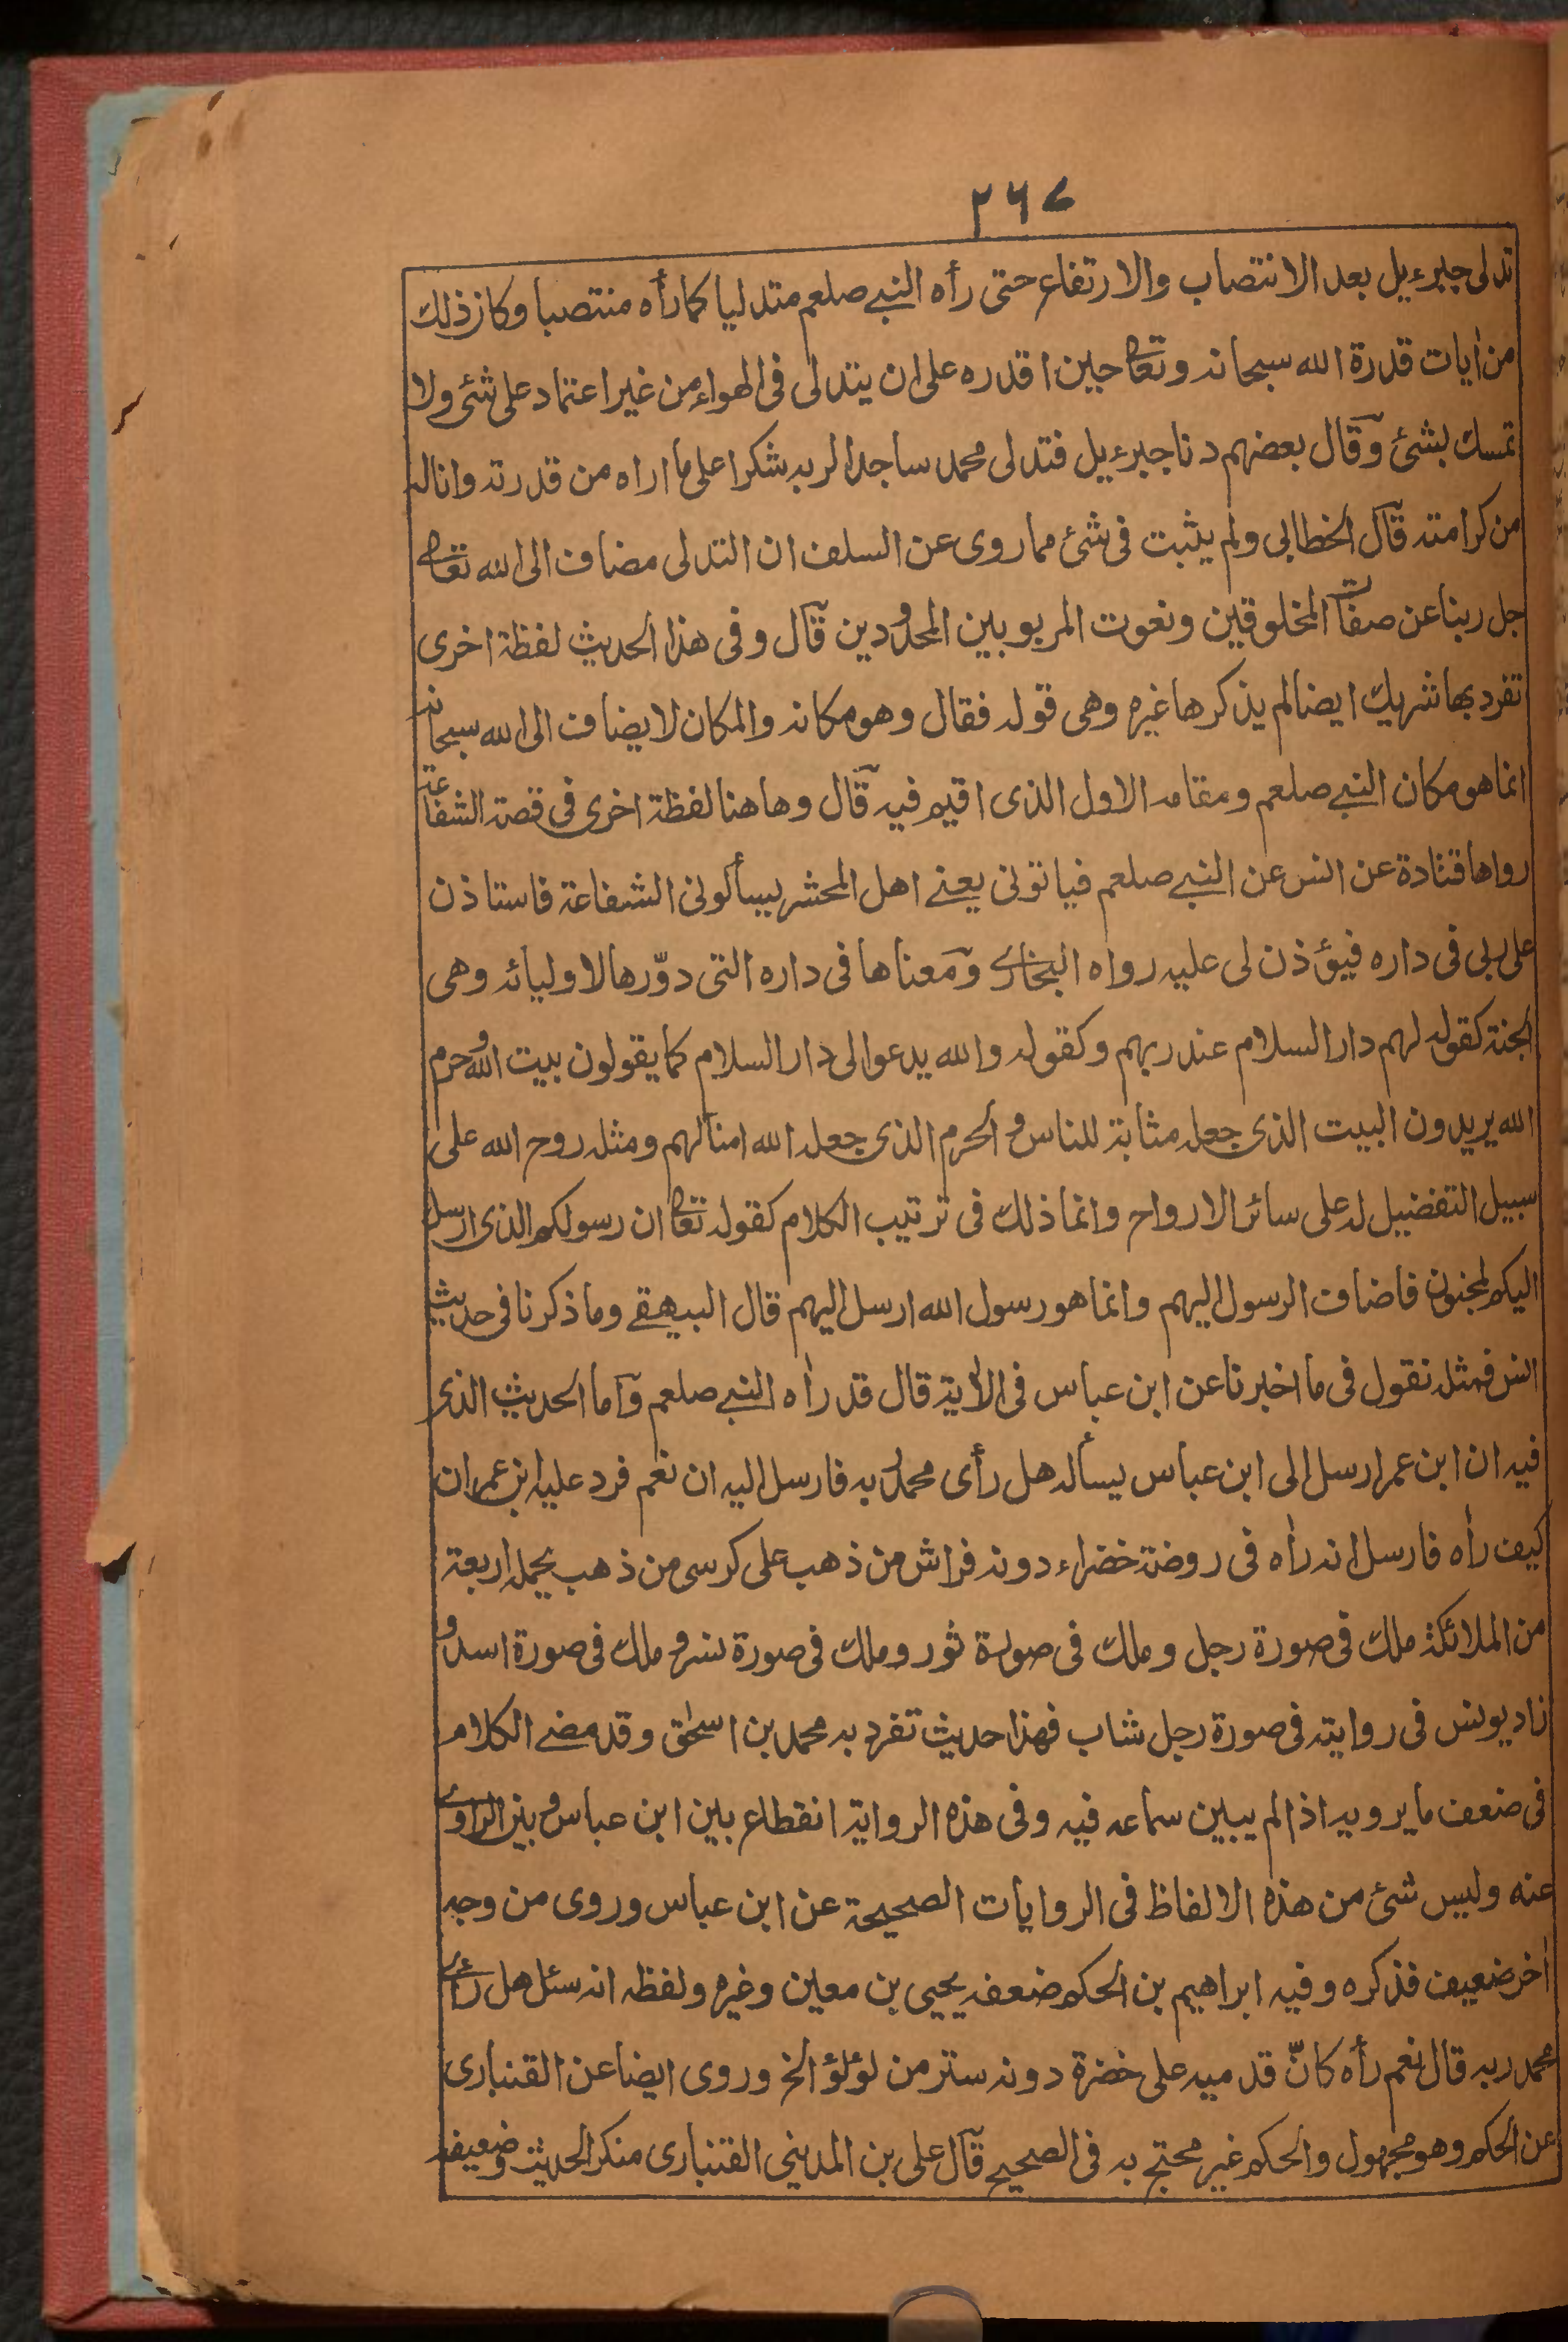 ٢٦٧
تدلى جبرءيل بعد الانتصاب والارتفاع حتى رأه النبي صلعم متدليا كما رأه منتصبا وكان ذلك
من أيات قدرة الله سبحانه وتعا حين اقدره على ان يتدلى فى الهواء من غير اعتماد على شئ ولا
تمسك بشئ وقال بعضهم دنا جبرءيل فتدلى محمد ساجدا لربه شكرا على ما اراه من قدرته واناله
من كرامته قال الخطابى ولم يثبت فى شئ مما روى عن السلف ان التدلى مضاف الى الله تعا
جل ربنا عن صفات المخلوقين ونعوت المربوبين المحدودين قال وفى هذا الحديث لفظة اخرى
تفرد بها شريك ايضا لم يذكرها غيره وهى قوله فقال وهو مكانه والمكان لا يضاف الى الله سبحانه
انما هو مكان النبي صلعم ومقامه الاول الذى اقيم فيه قال وهاهنا لفظة اخرى فى قصة الشفاعة
رواها قتادة عن انس عن النبي صلعم فياتونى يعنے اهل المحشر يسألونى الشفاعة فاستاذن
على ربى فى داره فيؤذن لى عليه رواه البخارى ومعناها فى داره التى دوّرها لاوليائه وهى
الجنة كقوله لهم دار السلام عند ربهم وكقوله والله يدعوا لى دار السلام كما يقولون بيت الله وحرم
الله يريدون البيت الذى جعله مثابة للناس والحرم الذى جعله الله امنا لهم ومثله روح الله على
سبيل التفضيل له على سائر الارواح وانما ذلك فى ترتيب الكلام كقوله تعا ان رسولكم الذى ارسل
اليكم لمجنون فاضاف الرسول اليهم وانما هو رسول الله ارسل اليهم قال البيهقے وما ذكرنا فى حديث
انس فمثله نقول فى ما اخبرنا عن ابن عباس فى الأية قال قد رأه النبي صلعم وأما الحديث الذى
فيه ان ابن عمر ارسل الى ابن عباس يسأله هل رأى محمد ربه فارسل اليه ان نعم فرد عليه ابن عمر ان
كيف رأه فارسل انه رأه فى روضة خضراء دونه فراش من ذهب على كرسى من ذهب يحمله اربعة
من الملائكة ملك فى صورة رجل وملك فى صورة ثور وملك فى صورة نسر وملك فى صورة اسد و
زاد يونس فى روايته فى صورة رجل شاب فهذا حديث تفرد به محمد بن اسحٰق وقد مضے الكلام
فى ضعف ما يرويه اذا لم يبين سماعه فيه وفى هذه الرواية انقطاع بين ابن عباس وبين الراوى
عنه وليس شئ من هذه الالفاظ فى الروايات الصحيحة عن ابن عباس وروى من وجه
أخر ضعيف فذكره وفيه ابراهيم بن الحكم ضعفه يحيى بن معين وغيره ولفظه انه سئل هل رأى
محمد ربه قال نعم رأه كانّ قدميه على خضرة دونه ستر من لؤلؤ الخ وروى ايضا عن القنبارى
عن الحكم وهو مجهول والحكم غير محتج به فى الصحيح قال على بن المدينى القنبارى منكر الحديث وضعيفه